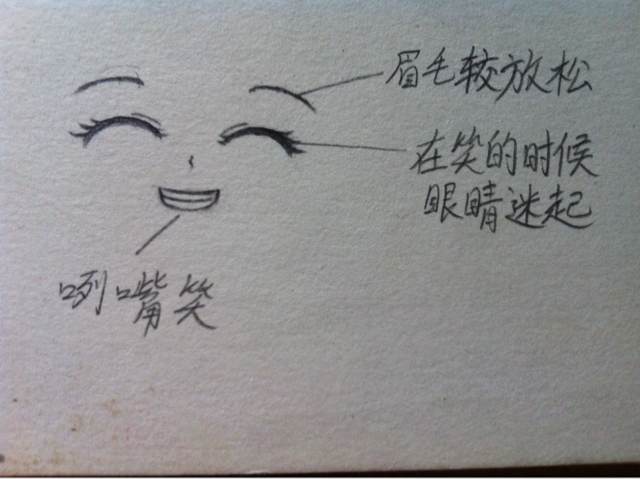 眉毛较放松
在笑的时候
眼睛迷起
咧嘴笑